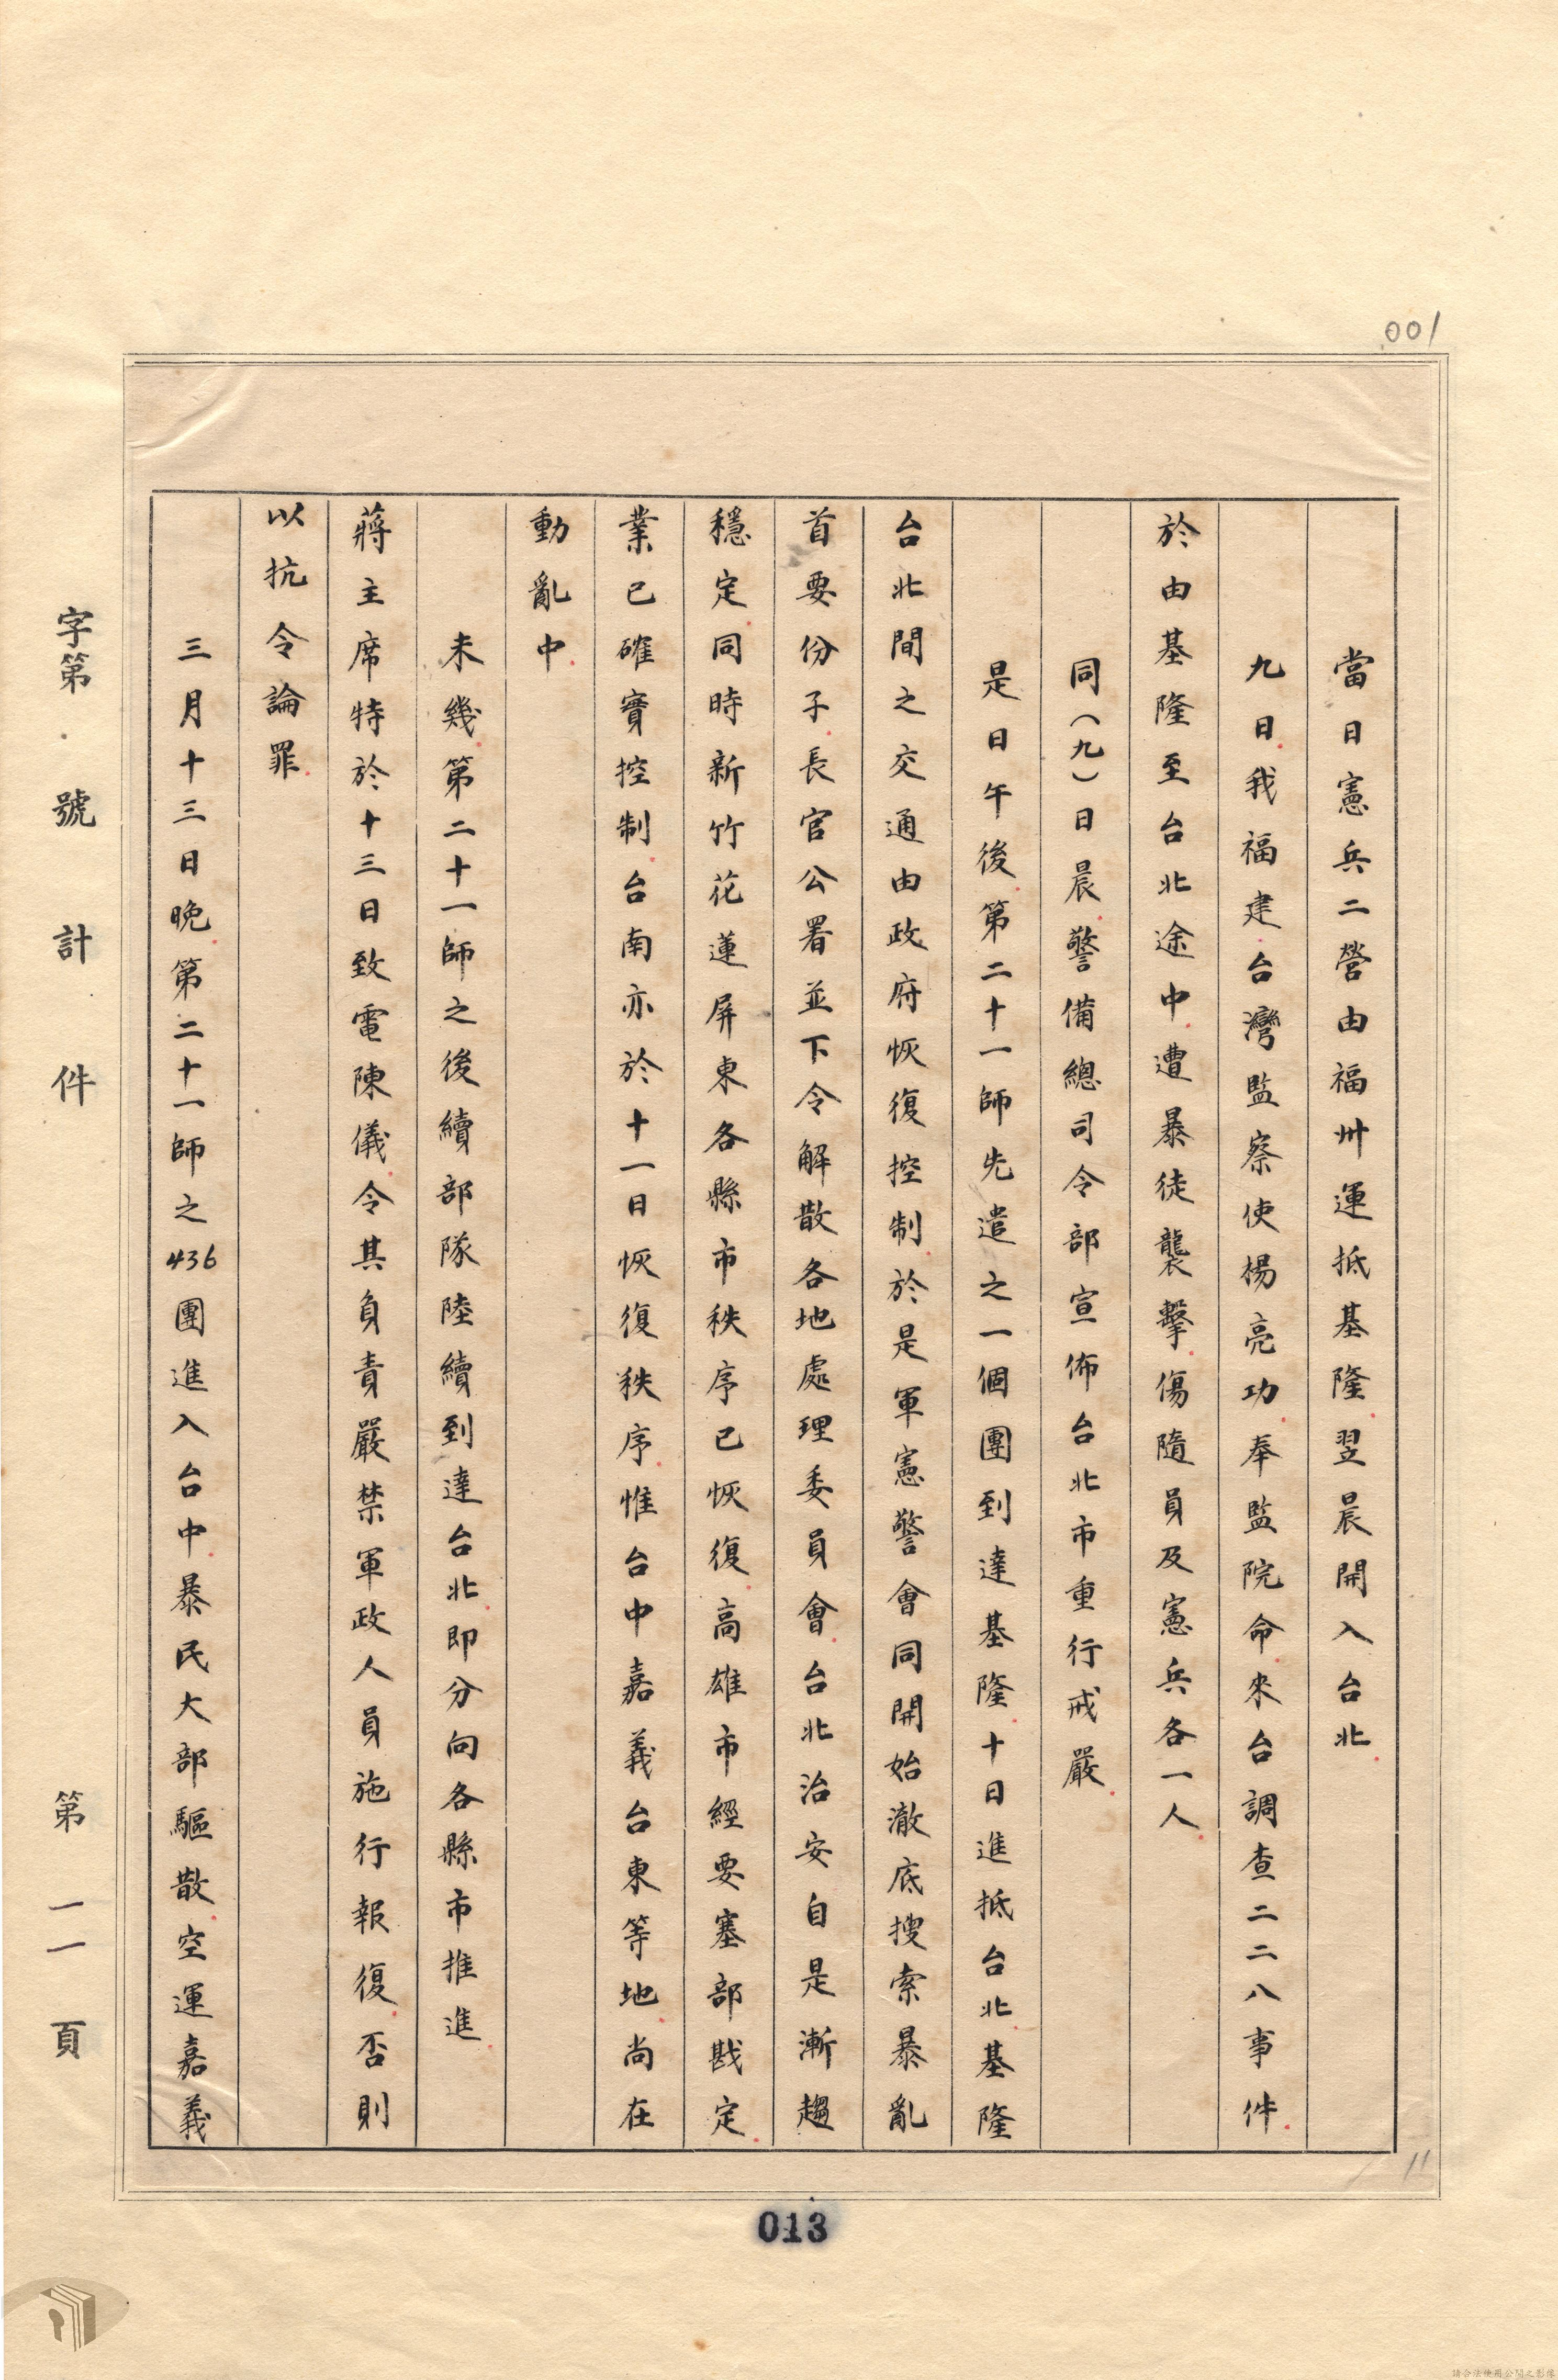 001
當日憲兵二營由福州運抵基隆翌晨開入台北
九日我福建台灣監察使楊亮功奉監院命來台調查二二八事件
於由基隆至台北途中遭暴徒襲擊傷隨員及憲兵各一人
同(九)日晨警備總司令部宣佈台北市重行戒嚴
是日午後第二十一師先遣之一個團到達基隆十日進抵台北基隆
台北間之交通由政府恢復控制於是軍憲警會同開始澈底搜索暴亂
首要份子長官公署並下令解散各地處理委員會台北治安自是漸趨
穩定同時新竹花蓮屏東各縣市秩序已恢復高雄市經要塞部戡定
業已確實控制台南亦於十一日恢復秩序惟台中嘉義台東等地尚在
動亂中
未幾第二十一師之後續部隊陸續到達台北即分向各縣市推進
蔣主席特於十三日致電陳儀令其負責嚴禁軍政人員施行報復否則
以抗令論罪
三月十三日晚第二十一師之436團進入台中暴民大部驅散空運嘉義
字第 號 計 件 第 一一 頁
11
013
請合法使用公開之影像